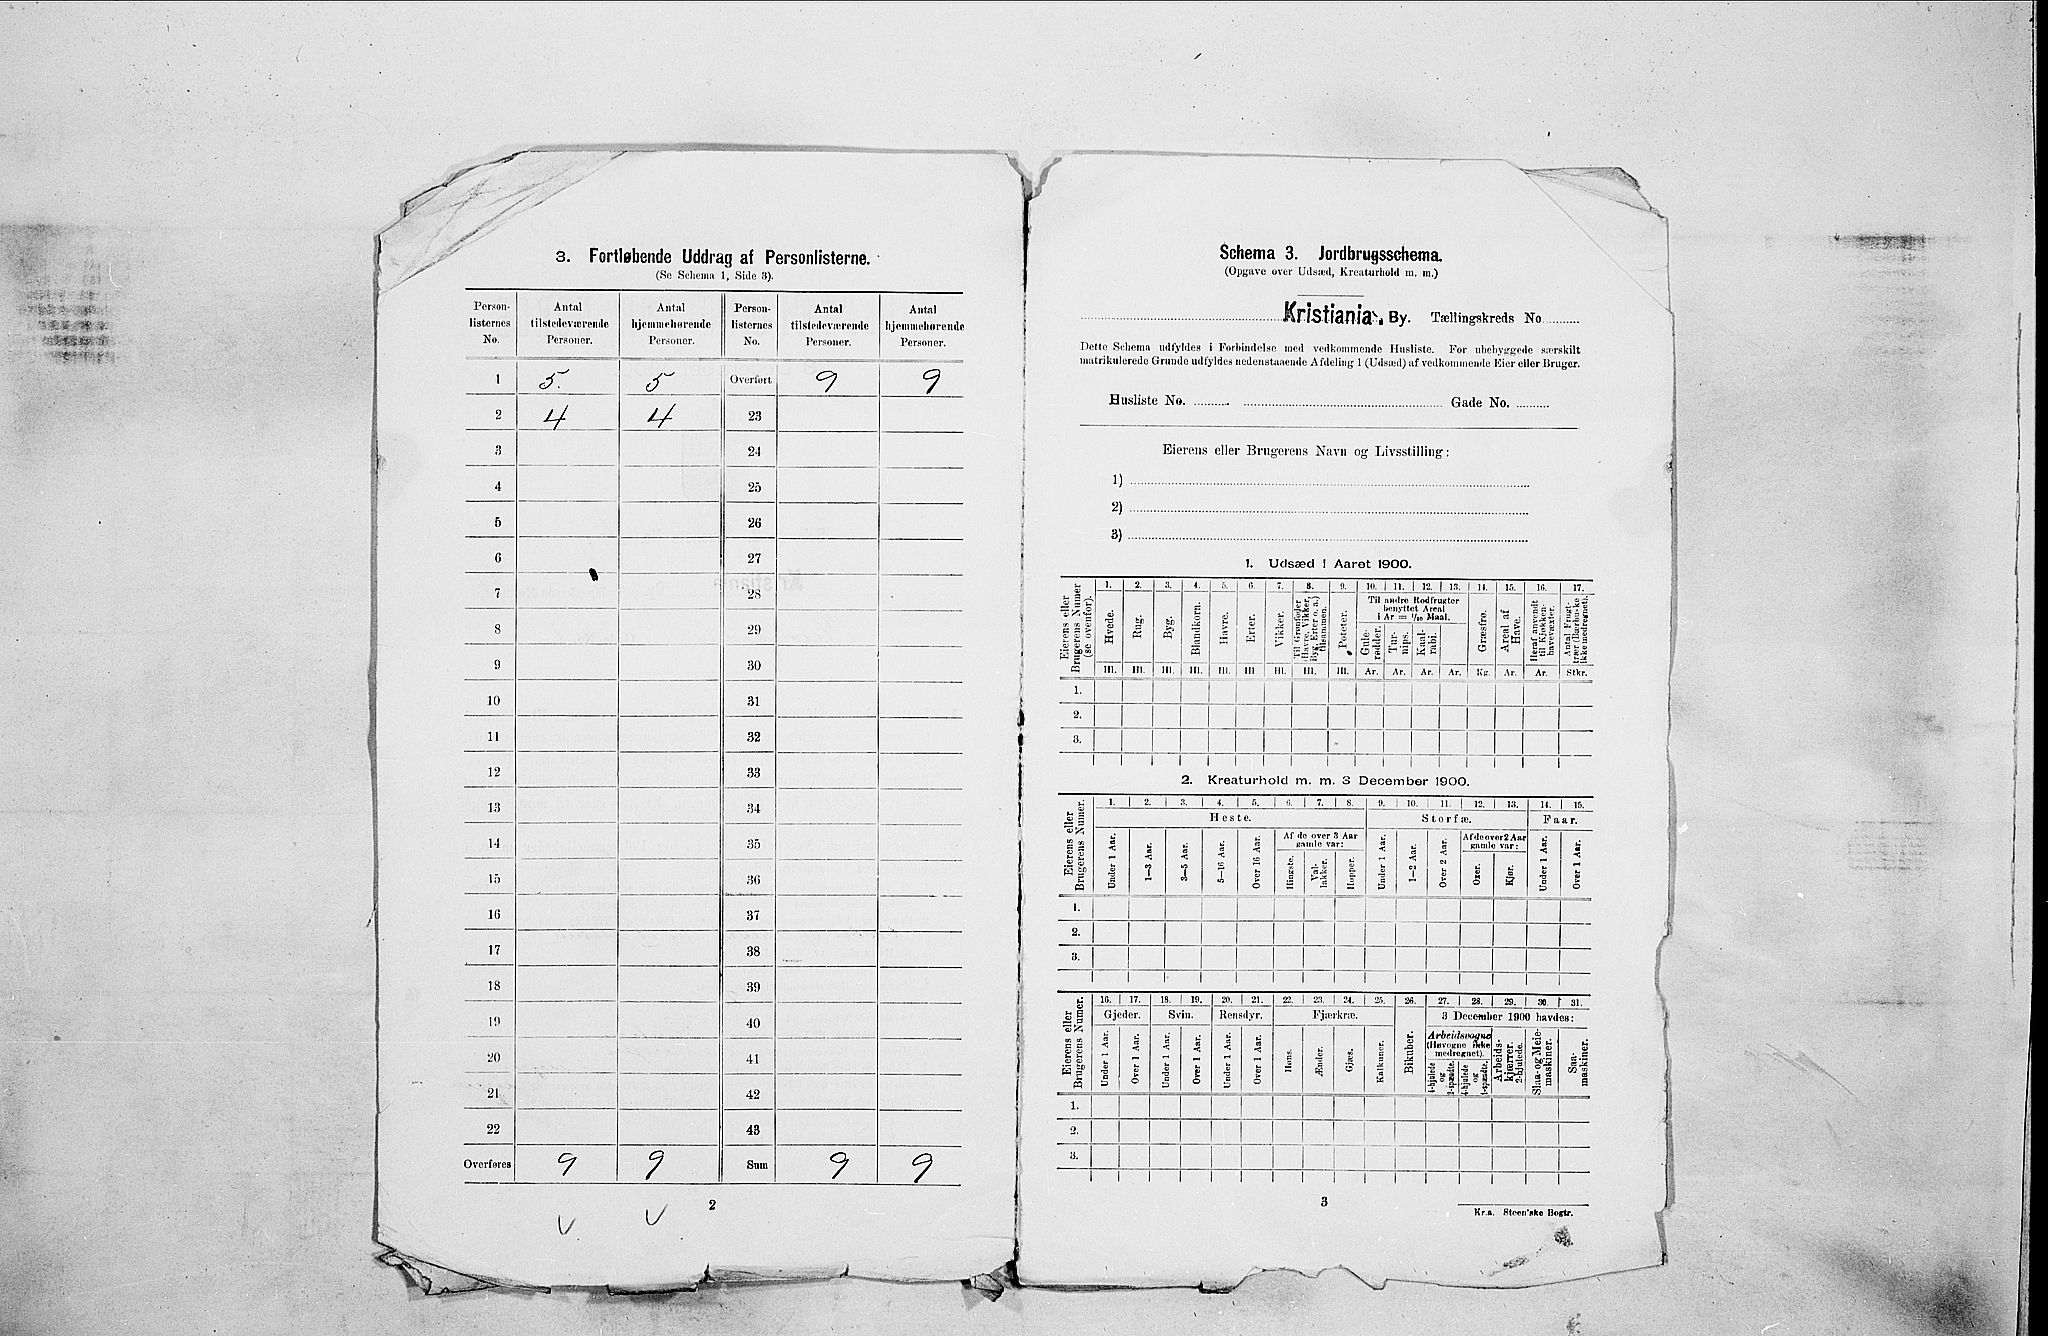 3. Fortløbende Uddrag af Personlisterne.
(Se Schema 1, Side 3).
Person-listernes No. Antal tilstedeværende Personer. Antal hjemmehørende Personer. Person-listernes No. Antal tilstedeværende Personer. Antal hjemmehørende Personer.
1 5. 5 Overført 9 9
2 4 4 23
3 24
4 25
5 26
6 27
7 28
8 29
9 30
10 31
11 32
12 33
13 34
14 35
15 36
16 37
17 38
18 39
19 40
20 41
21 42
22 43
Overføres 9 9 Sum 9 9
2
Schema 3. Jordbrugsschema.
(Opgave over Udsæd, Kreaturhold m. m.)
Kristiania, By. Tællingskreds No
Dette Schema udfyldes i Forbindelse med vedkommende Husliste. For ubebyggede særskilt
matrikulerede Grunde udfyldes nedenstaaende Afdeling 1 (Udsæd) af vedkommende Eier eller Bruger.
Husliste No. Gade No.
Eierens eller Brugerens Navn og Livsstilling:
1)
2)
3)
1. Udsæd i Aaret 1900.
Eierens eller Brugerens Numer (se ovenfor).
1. 2. 3. 4. 5. 6. 7. 8. 9. 10. 11. 12. 13. 14. 15. 16. 17.
Til andre Rodfrugter benyttet Areal i Ar = 1/10 Maal.
Hvede. Rug. Byg. Blandkorn. Havre. Erter. Vikker. Til Grønfoder (Havre, Vikker, Byg, Erter o. a.) tilsammen. Poteter. Gule-rødder. Tur-nips. Kaal-rabi. Græsfrø. Areal af Have. Heraf anvendt til Kjøkken-havevæxter. Antal Frugt-trær (Bærbuske ikke medregnet).
Hl. Hl. Hl. Hl. Hl. Hl Hl. Hl. Hl. Ar. Ar. Ar. Ar. Kg. Ar. Ar. Stkr.
1.
2.
3.
2. Kreaturhold m. m. 3 December 1900.
Eierens eller Brugerens Numer.
1. 2. 3. 4. 5. 6. 7. 8. 9. 10. 11. 12. 13. 14. 15.
Heste. Storfæ. Faar.
Af de over 3 Aar gamle var: Af de over 2 Aar gamle var:
Under 1 Aar. 1–3 Aar. 3–5 Aar. 5–16 Aar. Over 16 Aar. Hingste. Val-lakker. Hopper. Under 1 Aar. 1–2 Aar. Over 2 Aar. Oxer. Kjør. Under 1 Aar. Over 1 Aar.
1.
2.
3.
Eierens eller Brugerens Numer.
16. 17. 18. 19. 20. 21. 22. 23. 24. 25. 26. 27. 28. 29. 30. 31.
Gjeder. Svin. Rensdyr. Fjærkræ. 3 December 1900 havdes:
Arbeidsvogne (Høvogne ikke medregnet).
Under 1 Aar. Over 1 Aar. Under 1 Aar. Over 1 Aar. Under 1 Aar. Over 1 Aar. Høns. Ænder. Gjæs. Kalkuner. Bikuber. 4-hjulede og 2-spændte. 4-hjulede og 1-spændte. Arbeids-kjærrer. 2-hjulede. Slaa- og Meie-maskiner. Saa-maskiner.
1.
2.
3.
3
Kr.a. Steen'ske Bogtr.